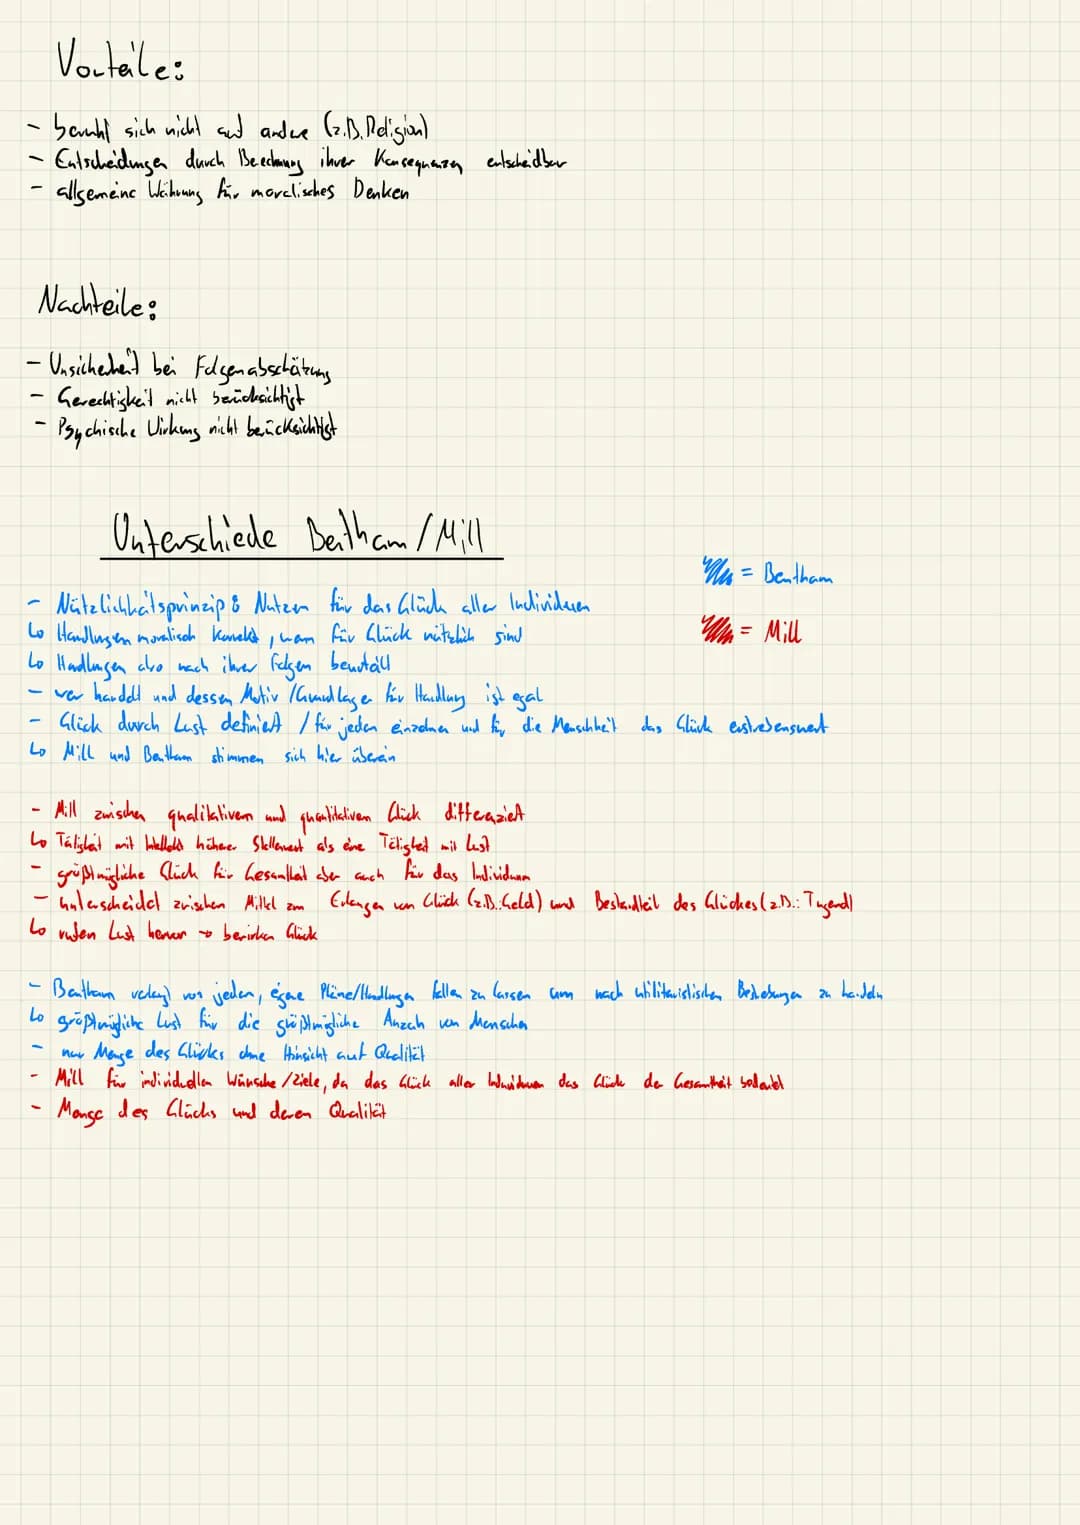 Vorteile:
- beruht sich nicht auf andere (z.B. Religion)
- Entscheidungen durch Berechnung ihrer Konsequenzen entscheidbar
- allgemeine Währung für moralisches Denken
Nachteile:
- Unsicherheit bei Folgenabschätzung
- Gerechtigkeit nicht berücksichtigt
- Psychische Wirkung nicht berücksichtigt
Unterschiede Bentham/Mill
= Bentham
= Mill
- Nützlichkeitsprinzip: Nutzen für das Glück aller Individuen
↳ Handlungen moralisch korrekt, wenn für Glück nützlich sind
↳ Handlungen also nach ihrer Folgen beurteilt
- wer handelt und dessen Motiv/Grundlage für Handlung ist egal
- Glück durch Lust definiert / für jeden einzelnen und für die Menschheit das Glück erstrebenswert
↳ Mill und Bentham stimmen sich hier überein
- Mill zwischen qualitativem und quantitativem Glück differenziert
↳ Tätigkeit mit Intellekt höherer Stellenwert als eine Tätigkeit mit Lust
- größtmögliche Glück für Gesamtheit aber auch für das Individuum
- unterscheidet zwischen Mittel zum Erlangen von Glück (z.B.: Geld) und Bestandteil des Glückes (z.B.: Tugend)
↳ rufen Lust hervor → bewirken Glück
- Bentham verlangt von jedem, eigene Pläne/Handlungen fallen zu lassen um nach utilitaristischen Bestrebungen zu handeln
↳ größtmögliche Lust für die größtmögliche Anzahl von Menschen
- nur Menge des Glückes ohne Hinsicht auf Qualität
- Mill für individuellen Wünsche/Ziele, da das Glück aller Individuen das Glück der Gesamtheit bedeutet
- Menge des Glücks und deren Qualität